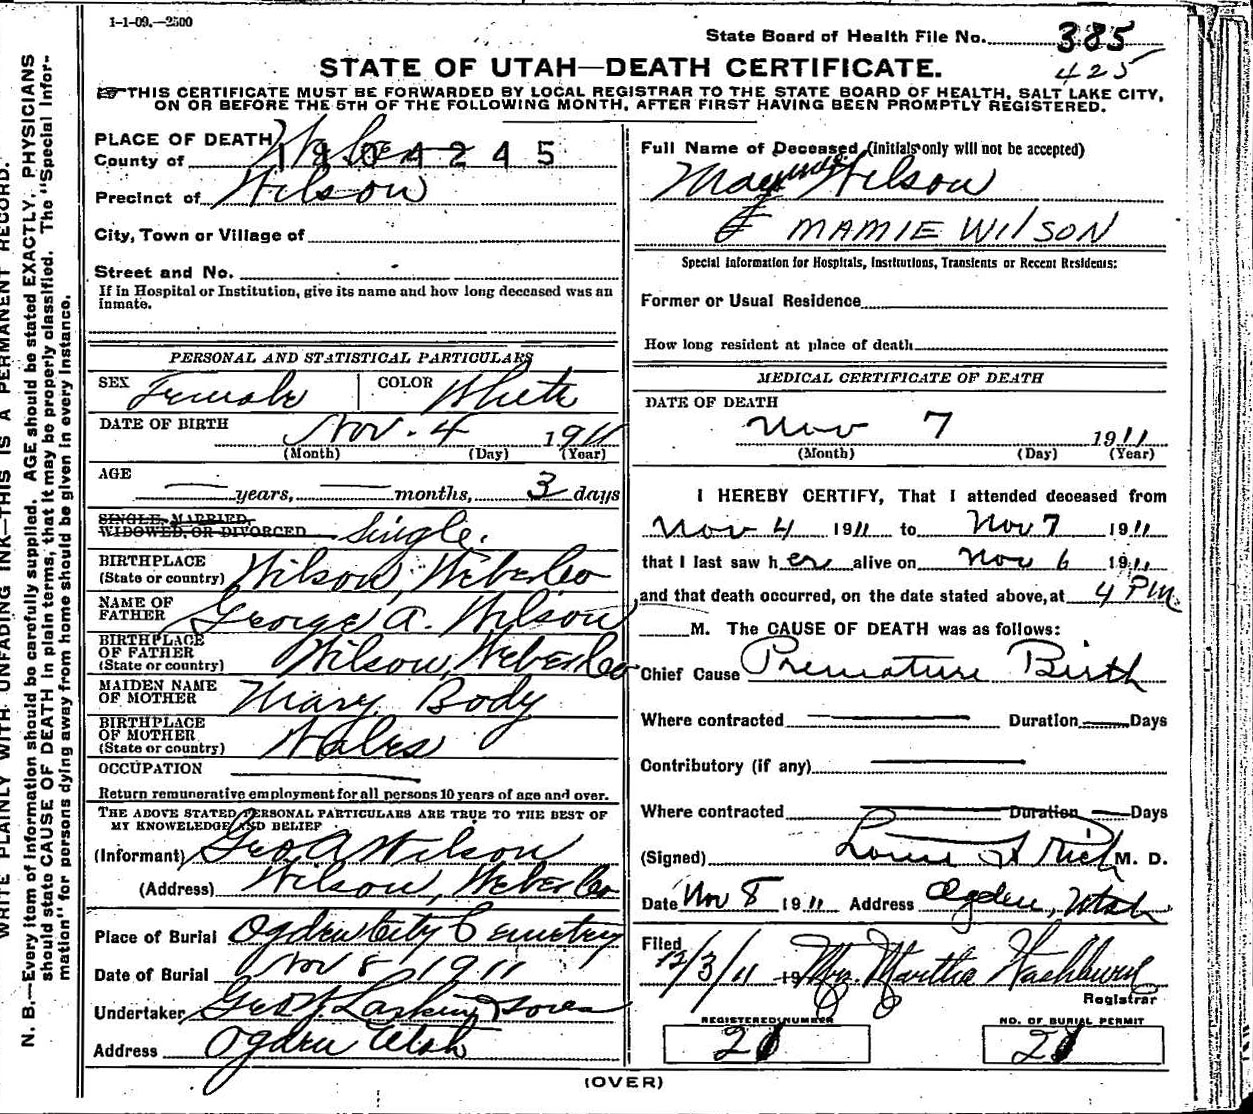 1-1-09.—2500
State Board of Health File No. 385
425
STATE OF UTAH—DEATH CERTIFICATE.
THIS CERTIFICATE MUST BE FORWARDED BY LOCAL REGISTRAR TO THE STATE BOARD OF HEALTH, SALT LAKE CITY,
ON OR BEFORE THE 5TH OF THE FOLLOWING MONTH, AFTER FIRST HAVING BEEN PROMPTLY REGISTERED.
WRITE PLAINLY WITH UNFADING INK—THIS IS A PERMANENT RECORD.
N. B.—Every item of information should be carefully supplied. AGE should be stated EXACTLY. PHYSICIANS
should state CAUSE OF DEATH in plain terms, that it may be properly classified. The "Special Infor-
mation" for persons dying away from home should be given in every instance.
PLACE OF DEATH
County of Weber 1904245
Precinct of Wilson
City, Town or Village of
Street and No.
If in Hospital or Institution, give its name and how long deceased was an
inmate.
PERSONAL AND STATISTICAL PARTICULARS
SEX Female COLOR White
DATE OF BIRTH Nov. 4 1911
(Month) (Day) (Year)
AGE
— years, — months, 3 days
SINGLE, MARRIED,
WIDOWED, OR DIVORCED Single.
BIRTHPLACE
(State or country) Wilson, Weber Co
NAME OF
FATHER George A. Wilson
BIRTHPLACE
OF FATHER
(State or country) Wilson, Weber Co
MAIDEN NAME
OF MOTHER Mary Body
BIRTHPLACE
OF MOTHER
(State or country) Wales
OCCUPATION
Return remunerative employment for all persons 10 years of age and over.
THE ABOVE STATED PERSONAL PARTICULARS ARE TRUE TO THE BEST OF
MY KNOWELEDGE AND BELIEF
(Informant) Geo A Wilson
(Address) Wilson, Weber Co
Place of Burial Ogden City Cemetery
Date of Burial Nov 8, 1911
Undertaker Geo W Larkin & Sons
Address Ogden Utah
Full Name of Deceased (initials only will not be accepted)
Wilson
MAMIE WILSON
Special Information for Hospitals, Institutions, Transients or Recent Residents:
Former or Usual Residence
How long resident at place of death
MEDICAL CERTIFICATE OF DEATH
DATE OF DEATH
Nov 7 1911
(Month) (Day) (Year)
I HEREBY CERTIFY, That I attended deceased from
Nov 4 1911 to Nov 7 1911
that I last saw her alive on Nov 6 1911
and that death occurred, on the date stated above, at 4 PM
M. The CAUSE OF DEATH was as follows:
Chief Cause Premature Birth
Where contracted — Duration — Days
Contributory (if any) —
Where contracted — Duration — Days
(Signed) Rich M. D.
Date Nov 8 1911 Address Ogden, Utah
Filed 12/3/11 19 Mrs. Martha Washburn
Registrar
REGISTERED NUMBER NO. OF BURIAL PERMIT
(OVER)